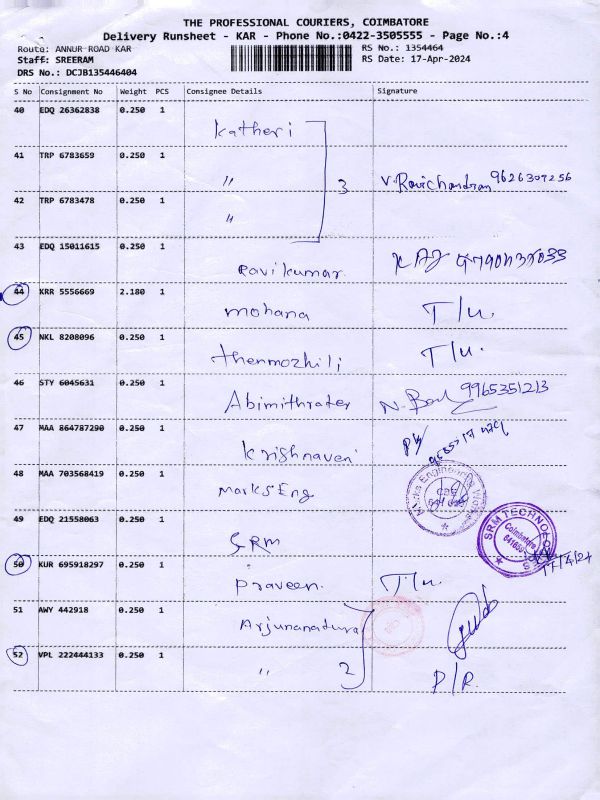 THE PROFESSIONAL COURIERS, COIMBATORE
Delivery Runsheet - KAR - Phone No.:0422-3505555 - Page No.:4
Route: ANNUR ROAD KAR
Staff: SREERAM
DRS No.: DCJB135446404
RS No.: 1354464
RS Date: 17-Apr-2024
S No Consignment No Weight PCS Consignee Details Signature
40 EDQ 26362838 0.250 1 Katheri
41 TRP 6783659 0.250 1 " 3 V. Ravichandran 9626307256
42 TRP 6783478 0.250 1 "
43 EDQ 15011615 0.250 1 Ravikumar
44 KRR 5556669 2.180 1 mohana T/u.
45 NKL 8208096 0.250 1 thenmozhili T/u.
46 STY 6045631 0.250 1 Abimithrater 9965351213
47 MAA 864787290 0.250 1 Krishnaveni
48 MAA 703568419 0.250 1 Marks Eng
49 EDQ 21558063 0.250 1 SRM SRM TECHNOLOGIES Coimbatore 17/4/24
50 KUR 695918297 0.250 1 Praveen. T/u.
51 AWY 442918 0.250 1 Arjunanadurai
52 VPL 222444133 0.250 1 " 2 P/R.